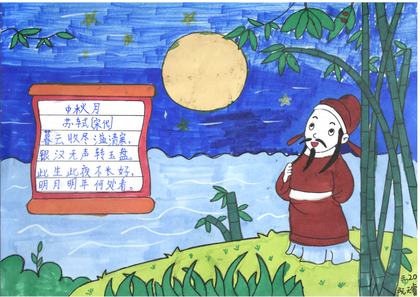 中秋月
苏轼[宋代]
暮云收尽溢清寒,
银汉无声转玉盘。
此生此夜不长好,
明月明年何处看。